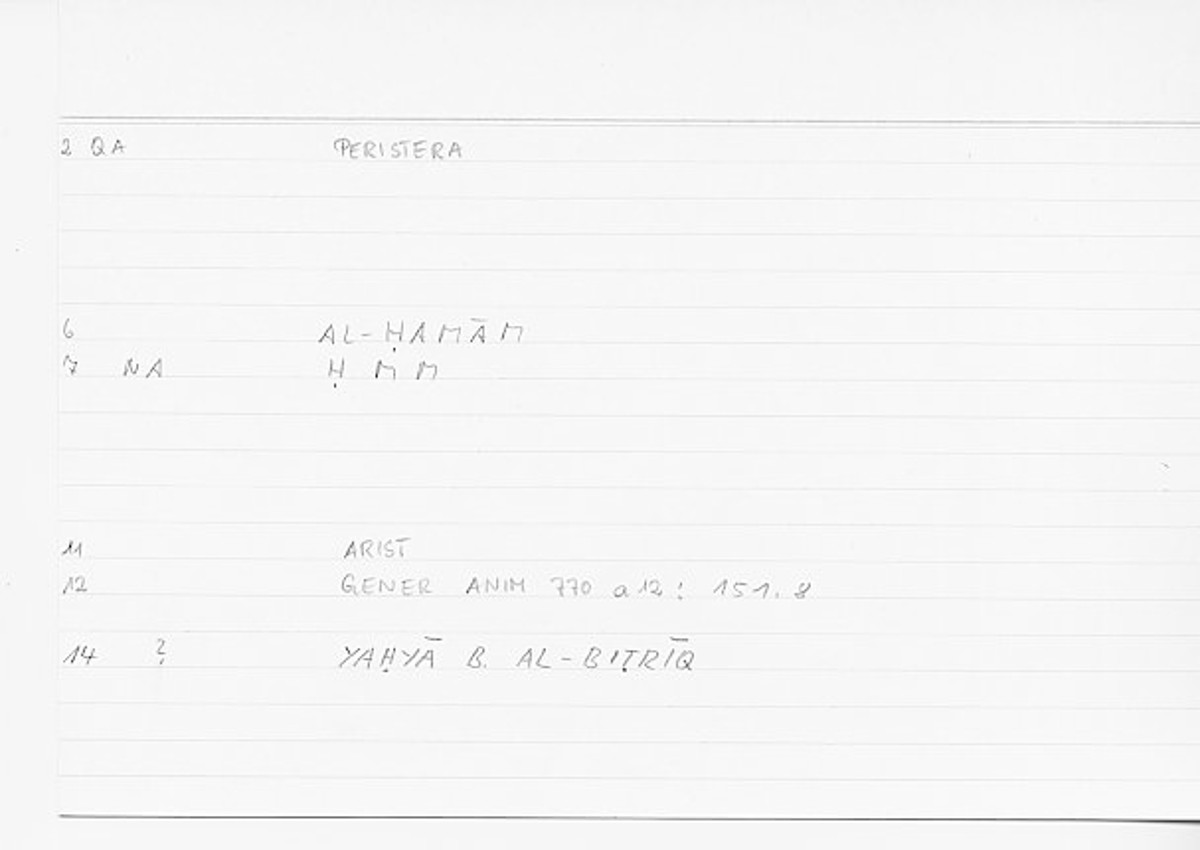 2 QA PERISTERA
6 AL-ḤAMĀM
7 NA Ḥ M M
11 ARIST
12 GENER ANIM 770 a 12 : 151. 8
14 ? YAḤYĀ B. AL-BIṬRĪQ